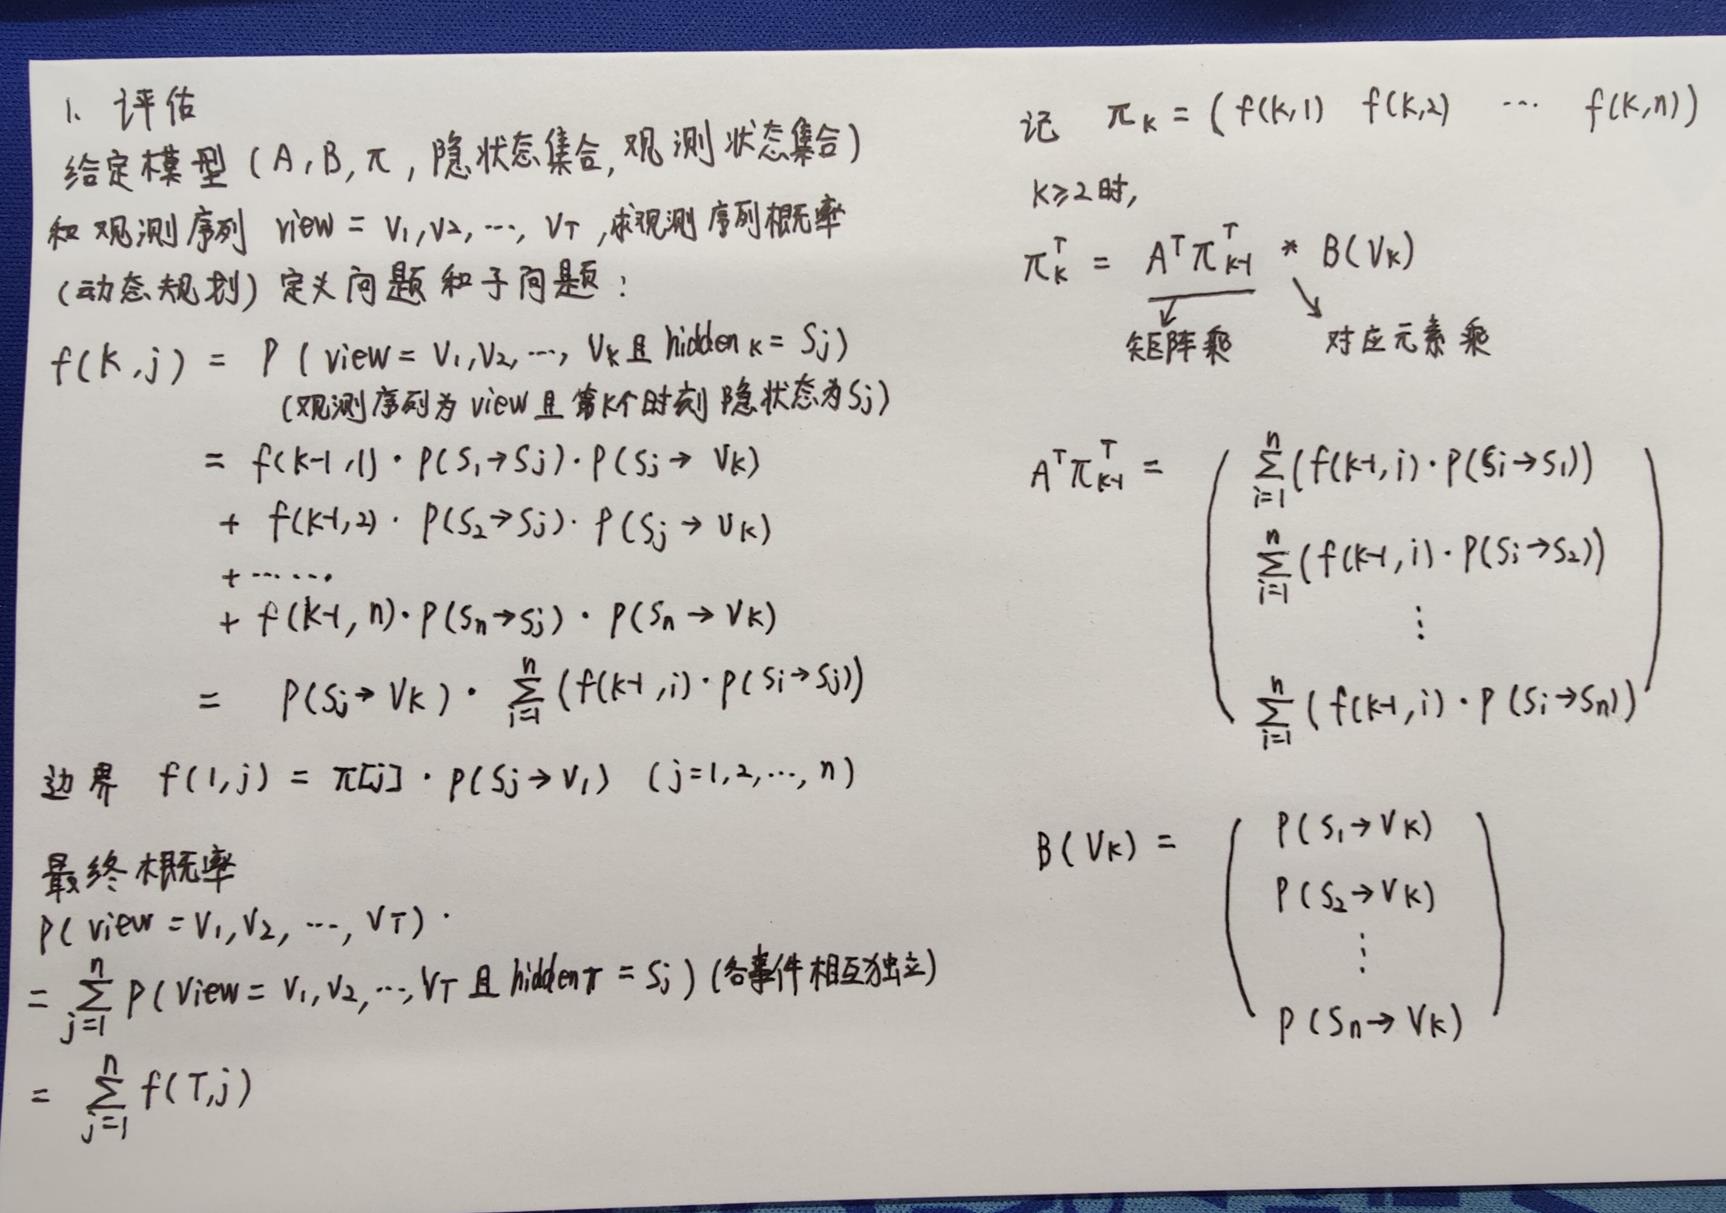 1. 评估
给定模型 (A, B, π, 隐状态集合, 观测状态集合)
和观测序列 view = V₁, V₂, ⋯, V_T, 求观测序列概率
(动态规划) 定义问题和子问题:
f(k, j) = P ( view = V₁, V₂, ⋯, V_k 且 hidden_k = S_j )
(观测序列为view且第k个时刻隐状态为S_j)
= f(k-1, 1) · P(S₁→S_j) · P(S_j → V_k)
+ f(k-1, 2) · P(S₂→S_j) · P(S_j → V_k)
+ ⋯⋯
+ f(k-1, n) · P(S_n→S_j) · P(S_n → V_k)
= P(S_j→V_k) · ∑_{i=1}^{n} (f(k-1, i) · P(S_i→S_j))
边界 f(1, j) = π[j] · P(S_j→V₁) (j=1, 2, ⋯, n)
最终概率
P( view = V₁, V₂, ⋯, V_T ) ·
= ∑_{j=1}^{n} P( View = V₁, V₂, ⋯, V_T 且 hidden_T = S_j ) (各事件相互独立)
= ∑_{j=1}^{n} f(T, j)
记 π_k = ( f(k,1) f(k,2) ⋯ f(k,n) )
k≥2时,
π_k^T = A^T π_{k-1}^T * B(V_k)
矩阵乘 对应元素乘
A^T π_{k-1}^T =
∑_{i=1}^{n} (f(k-1, i) · P(S_i→S₁))
∑_{i=1}^{n} (f(k-1, i) · P(S_i→S₂))
⋮
∑_{i=1}^{n} (f(k-1, i) · P(S_i→S_n))
B(V_k) =
P(S₁→V_k)
P(S₂→V_k)
⋮
P(S_n→V_k)